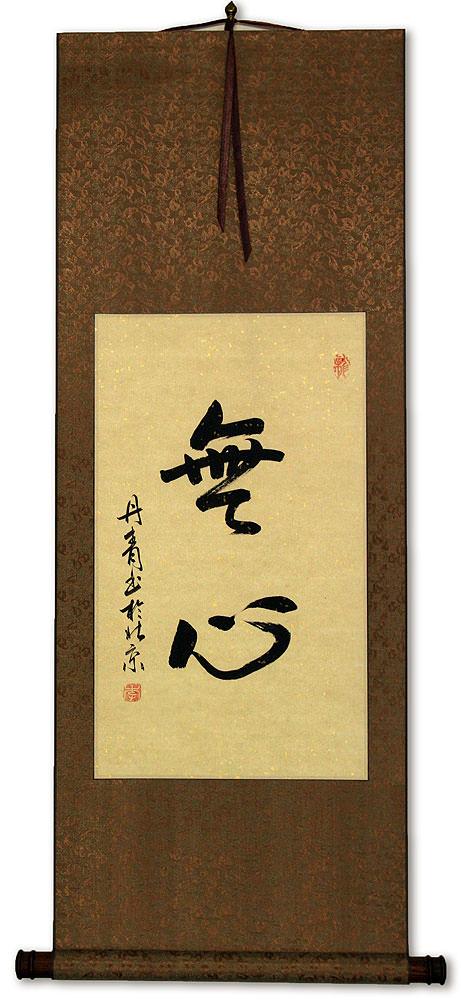 無心
丹青书於北京